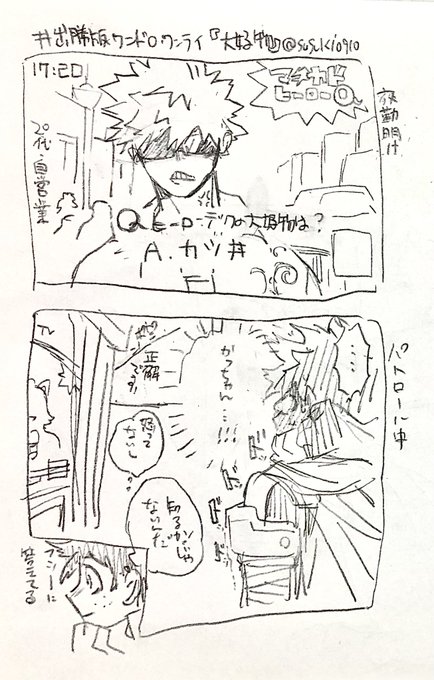 #出勝版ワンドロワンライ『大好物』@susuki0910
17:20
マチカド
ヒーローQ
夜勤明け
20代・自営業
Q.ヒーローデクの大好物は?
A.カツ丼
パトロール中
……
かっちゃん…!!!
ドッ
ドッ
ドッ
TV
正解
です!
怒って
ないし
知るかじゃ
ないんだ
フツーに
答えてる